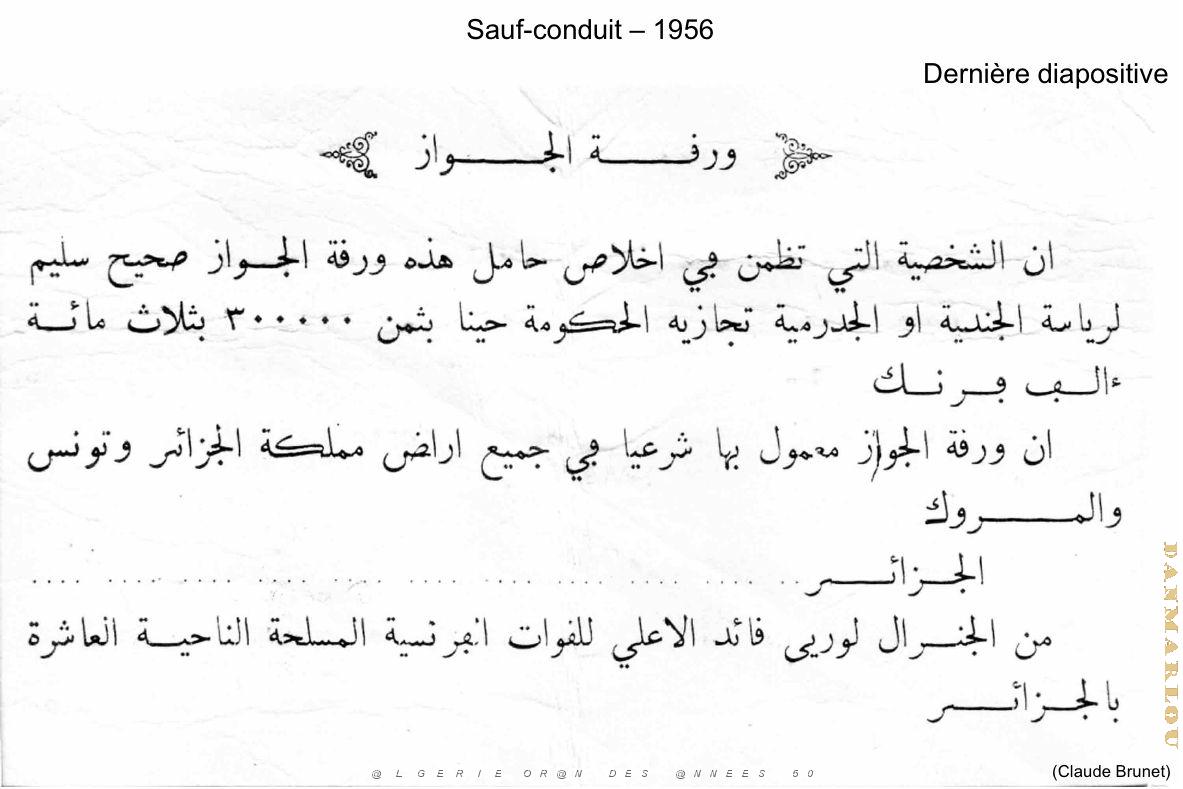 Sauf-conduit – 1956
Dernière diapositive
ورفة الجواز
ان الشخصية التي تظمن ڢي اخلاص حامل هذه ورفة الجواز صحيح سليم
لرياسة الجندية او الجدرمية تجازيه الحكومة حينا بثمن ٣٠٠٠٠٠ بثلاث مائة
ءالڢ ڢرنك
ان ورفة الجواز معمول بها شرعيا ڢي جميع اراض مملكة الجزائر وتونس
والمروك
الجزائر . . . . . . . . . . . . . . . . . . . . . . . .
من الجنرال لوريى فائد الاعلي للفوات الڢرنسية المسلحة الناحية العاشرة
بالجزائر
DANMARLOU
@LGERIE OR@N DES @NNEES 50
(Claude Brunet)